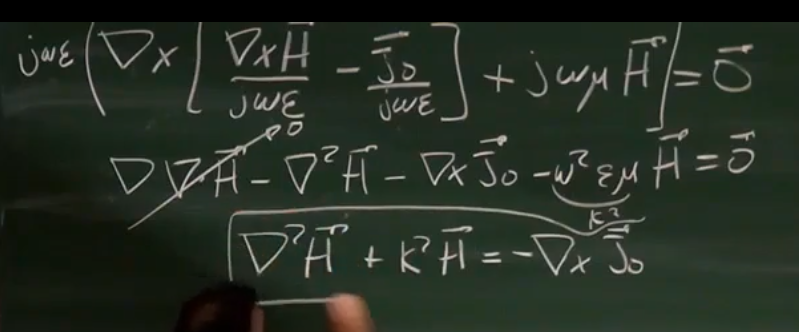 jωε(∇×[∇×H⃗/jωε − J⃗₀/jωε] + jωμH⃗) = 0⃗
∇∇·H⃗ →0 − ∇²H⃗ − ∇×J⃗₀ − ω²εμH⃗ = 0⃗
k²
∇²H⃗ + k²H⃗ = −∇×J⃗₀